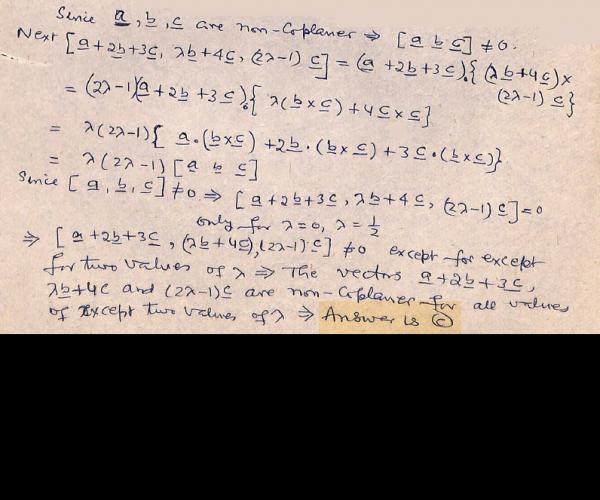 Since a, b, c are non-Coplaner ⇒ [a b c] ≠ 0.
Next [a+2b+3c, λb+4c, (2λ-1) c] = (a+2b+3c).{(λb+4c)×
(2λ-1) c}
= (2λ-1)(a+2b+3c).{λ(b×c)+4c×c}
= λ(2λ-1){a.(b×c)+2b.(b×c)+3c.(b×c)}
= λ(2λ-1)[a b c]
Since [a, b, c] ≠ 0 ⇒ [a+2b+3c, λb+4c, (2λ-1)c]=0
only for λ=0, λ=1/2
⇒ [a+2b+3c, (λb+4c), (2λ-1)c] ≠ 0 except for except
for two values of λ ⇒ The vectors a+2b+3c,
λb+4c and (2λ-1)c are non-Coplaner for all values
of except two values of λ ⇒ Answer is (c)